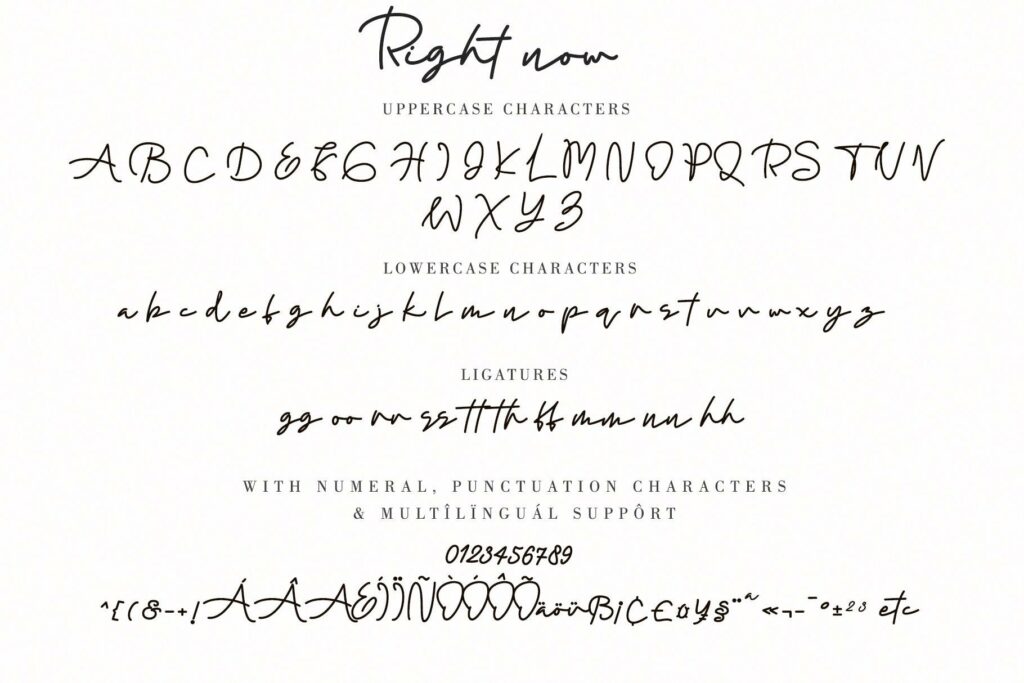 Right now
UPPERCASE CHARACTERS
A B C D E F G H I J K L M N O P Q R S T U V
W X Y Z
LOWERCASE CHARACTERS
a b c d e f g h i j k l m n o p q r s t u v w x y z
LIGATURES
gg oo rr ss tt th ff mm nn hh
WITH NUMERAL, PUNCTUATION CHARACTERS
& MULTÎLÏNGUÁL SUPPÔRT
0123456789
^{(&-+!ÁÂAÉÍÏÑÒÓÔÕäöüß¡¢£¤¥§¨ª«¬-¯º±²³ etc